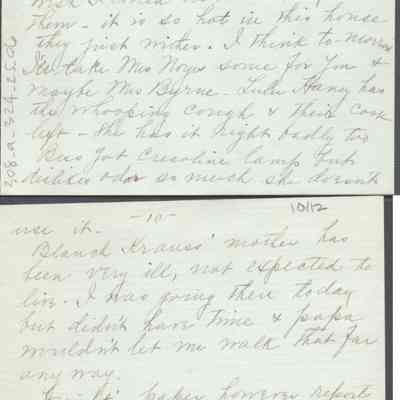 them - it is so hot in this house
they just wither. I think to-morrow
I'll take Mrs Noyes some for Jim &
maybe Mrs Byrne. Lulu Haney has
the whooping cough & their cook
left - she has it right badly too
Bess got Cresoline lamp but
dislikes odor so much she doesn't
208-a-324-25.06
10/12
use it. -10-
Blanch Krauss' mother has
been very ill, not expected to
live. I was going there today
but didn't have time & papa
wouldn't let me walk that far
any way.
paper however reports